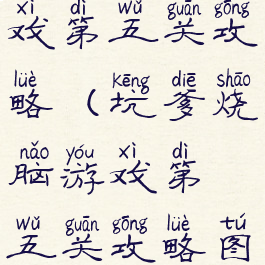 xì dì wǔ guān gōng
戏第五关攻
lüè kēng diē shāo
略（坑爹烧
nǎo yóu xì dì
脑游戏第
wǔ guān gōng lüè tú
五关攻略图